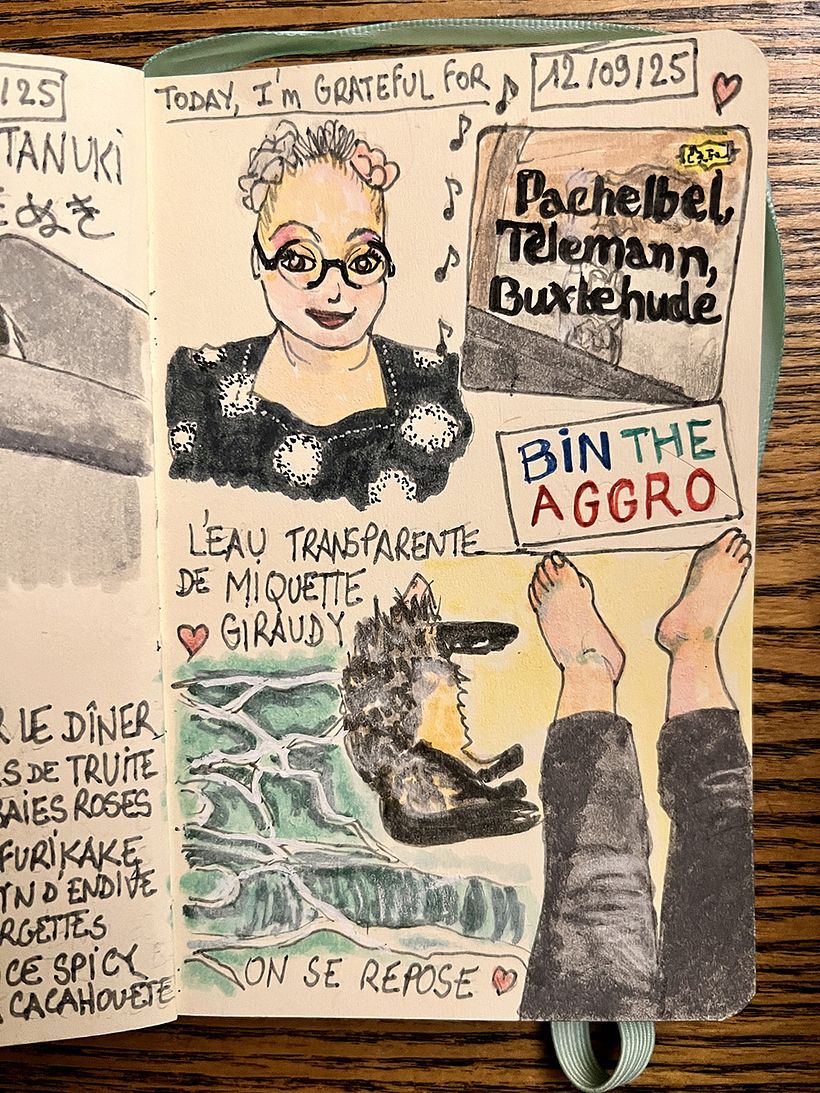 /25
TANUKI
ぬき
R LE DÎNER
S DE TRUITE
BAIES ROSES
FURIKAKE
YN D'ENDIVE
RGETTES
CE SPICY
CACAHOUETE
TODAY, I'm GRATEFUL FOR
12/09/25
Pachelbel,
Telemann,
Buxtehude
BIN THE
AGGRO
L'EAU TRANSPARENTE
DE MIQUETTE
GIRAUDY
ON SE REPOSE